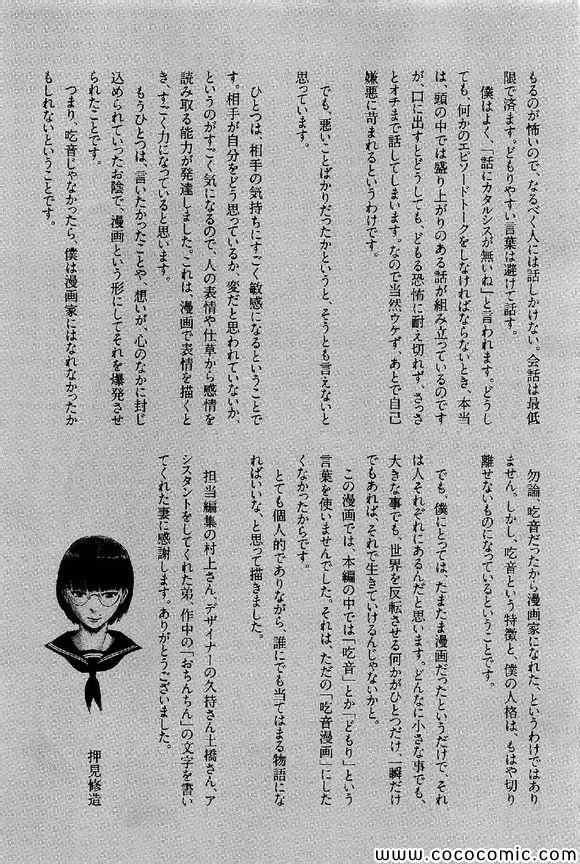 もるのが怖いので、なるべく人には話しかけない。会話は最低
限で済ます。どもりやすい言葉は避けて話す。
僕はよく、「話にカタルシスが無いね」と言われます。どうし
ても、何かのエピソードトークをしなければならないとき、本当
は、頭の中では盛り上がりのある話が組み立っているのです
が、口に出すとどうしても、どもる恐怖に耐え切れず、さっさ
とオチまで話してしまいます。なので当然ウケず、あとで自己
嫌悪に苛まれるというわけです。
でも、悪いことばかりだったかというと、そうとも言えないと
思っています。
ひとつは、相手の気持ちにすごく敏感になるということで
す。相手が自分をどう思っているか、変だと思われていないか、
というのがすごく気になるので、人の表情や仕草から感情を
読み取る能力が発達しました。これは、漫画で表情を描くと
き、すごく力になっていると思います。
もうひとつは、言いたかったことや、想いが、心のなかに封じ
込められていったお陰で、漫画という形にしてそれを爆発させ
られたことです。
つまり、吃音じゃなかったら、僕は漫画家にはなれなかったか
もしれないということです。
勿論、吃音だったから漫画家になれた、というわけではあり
ません。しかし、吃音という特徴と、僕の人格は、もはや切り
離せないものになっているということです。
でも、僕にとっては、たまたま漫画だったというだけで、それ
は人それぞれにあるんだと思います。どんなに小さな事でも、
大きな事でも、世界を反転させる何かがひとつだけ、一瞬だけ
でもあれば、それで生きていけるんじゃないかと。
この漫画では、本編の中では「吃音」とか「どもり」という
言葉を使いませんでした。それは、ただの「吃音漫画」にした
くなかったからです。
とても個人的でありながら、誰にでも当てはまる物語にな
ればいいな、と思って描きました。
担当編集の村上さん、デザイナーの久持さん土橋さん、ア
シスタントをしてくれた弟、作中の「おちんちん」の文字を書い
てくれた妻に感謝します。ありがとうございました。
押見修造
www.cococomic.com